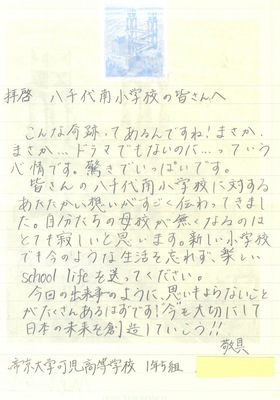 拝啓 八千代南小学校の皆さんへ
こんな奇跡ってあるんですね!まさか、
まさか…ドラマでもないのに…っていう
心情です。驚きでいっぱいです。
皆さんの八千代南小学校に対する
あたたかい想いがすごく伝わってきまし
た。自分たちの母校が無くなるのは
とても寂しいと思います。新しい小学校
でも今のような生活を忘れず、楽しい
school lifeを送ってください。
今回の出来事のように、思いもよらないこと
がたくさんあるはずです!"今"を大切にして
日本の未来を創造していこう!!
敬具
帝京大学可児高等学校 1年5組